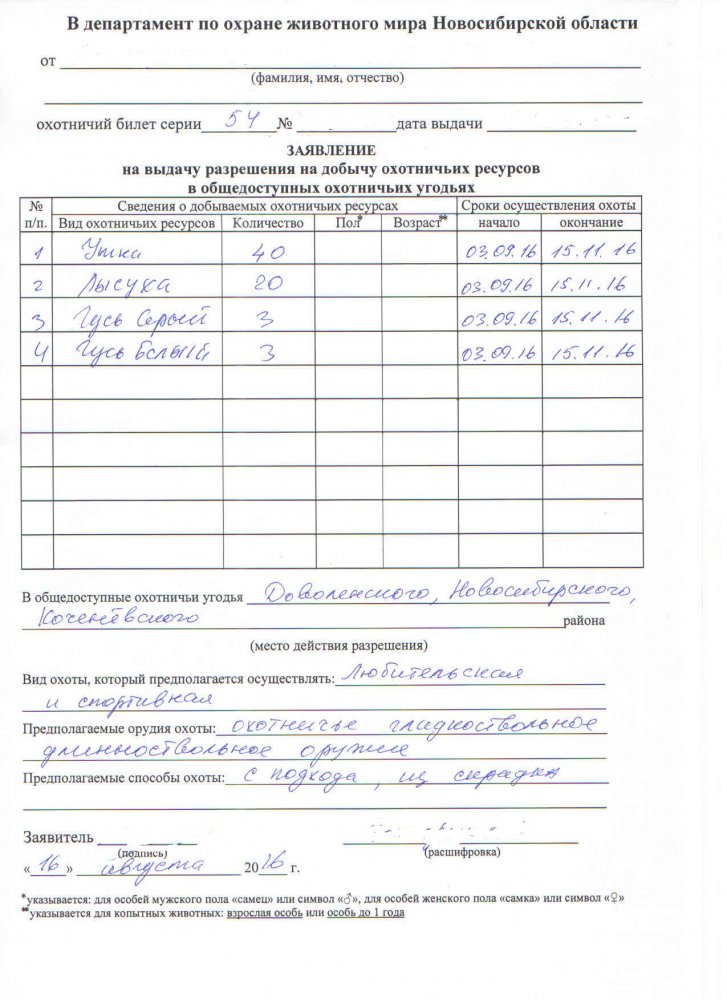 В департамент по охране животного мира Новосибирской области
от
(фамилия, имя, отчество)
охотничий билет серии 54 № дата выдачи
ЗАЯВЛЕНИЕ
на выдачу разрешения на добычу охотничьих ресурсов
в общедоступных охотничьих угодьях
№ п/п. Сведения о добываемых охотничьих ресурсах Сроки осуществления охоты
Вид охотничьих ресурсов Количество Пол* Возраст** начало окончание
1 Утка 40 03.09.16 15.11.16
2 Лысуха 20 03.09.16 15.11.16
3 Гусь Серый 3 03.09.16 15.11.16
4 Гусь Белый 3 03.09.16 15.11.16
В общедоступные охотничьи угодья Доволенского, Новосибирского,
Коченёвского района
(место действия разрешения)
Вид охоты, который предполагается осуществлять: Любительская
и спортивная
Предполагаемые орудия охоты: охотничье гладкоствольное
длинноствольное оружие
Предполагаемые способы охоты: с подхода, из скрадка
Заявитель
(подпись) (расшифровка)
«16» августа 2016 г.
*указывается: для особей мужского пола «самец» или символ «♂», для особей женского пола «самка» или символ «♀»
**указывается для копытных животных: взрослая особь или особь до 1 года